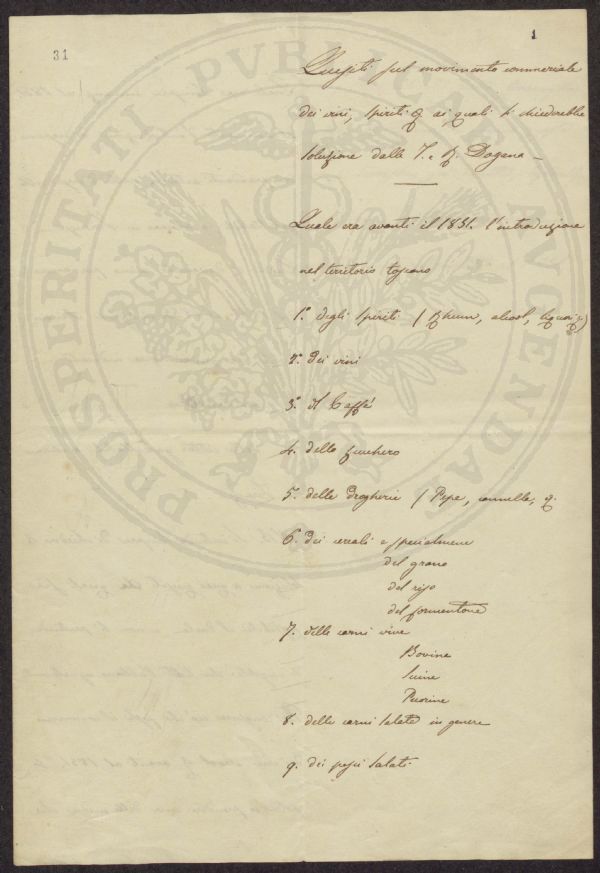 31
1
Quesiti sul movimento commerciale
dei vini, spiriti &. ai quali si chiederebbe
soluzione dalla I. e R. Dogana –
Quale era avanti il 1851. l'introduzione
nel territorio toscano
1.° degli Spiriti / Rhum, alcool, liquori &.)
2.° dei vini
3.° il Caffé
4. dello zucchero
5. delle drogherie / Pepe, cannella, &.
6. dei cereali e specialmene
del grano
del riso
del formentone
7. delle carni vive
Bovine
Suine
Pecorine
8. delle carni salate in genere
9. dei pesci salati
PROSPERITATI PVBLICAE AVGENDAE